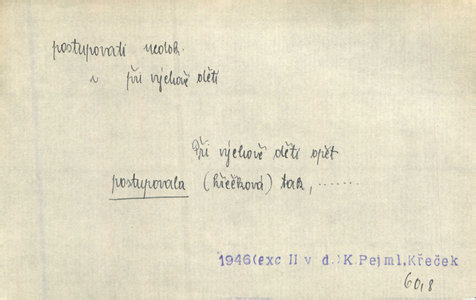 postupovati nedok.
v při výchově dětí
Při výchově dětí opět
postupovala (křečková) tak, .......
1946(exc II v d.) K.Pejml,Křeček
60,8